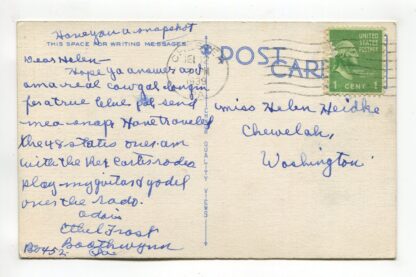 Have you a snapshot
THIS SPACE FOR WRITING MESSAGES
Dear Helen-
Hope ya answer and
am a real cowgal longin
for a true blue pal send
me a snap. Have traveled
the 48 states over am
with the Rex Carter rodeo
play my guitar & yodel
over the radio.
adios
Ethel Frost
Boothwynn
Box 452 Pa
POST
CARD
1939
UNITED STATES
POSTAGE
1 CENT 1
QUALITY VIEWS
Miss Helen Heidke
Chewelah,
Washington